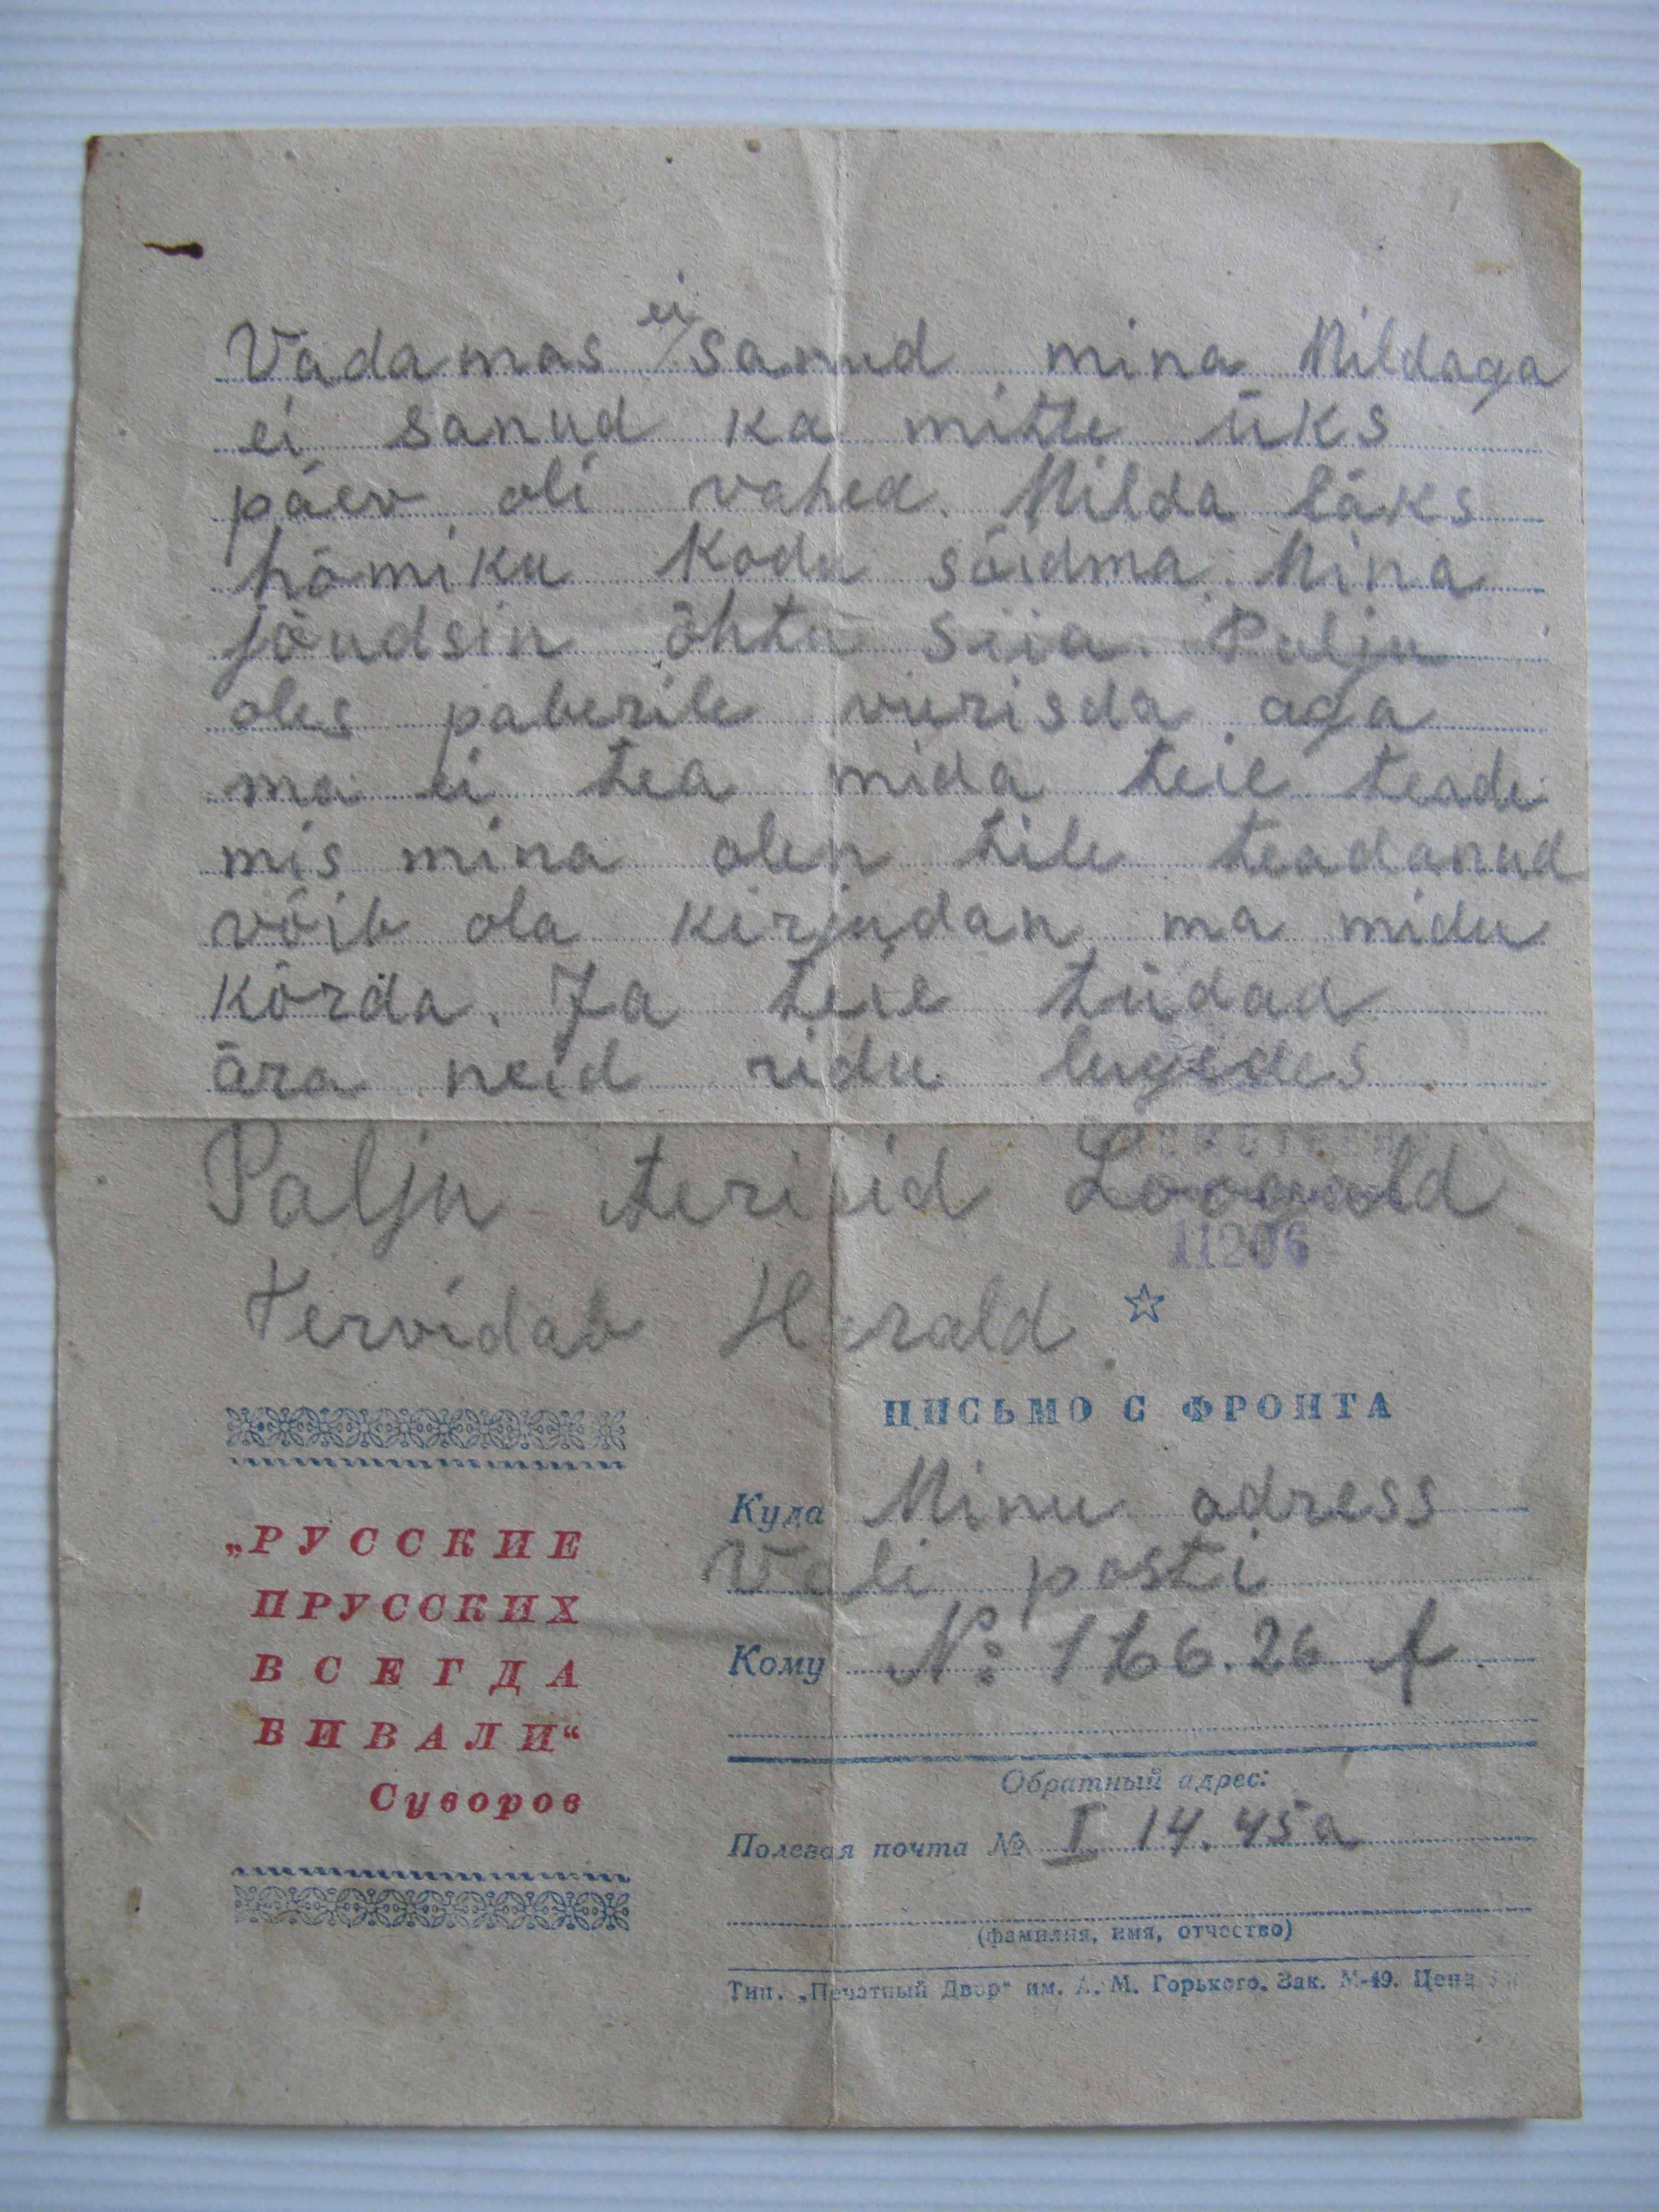 Vadamas ei sanud mina Mildaga
ei sanud ka mitte üks
päev oli vahed. Milda läks
hõmiku Kodu sõidma. Mina
jõudsin õhtu siia. Palju
oles paberile vierisda aga
ma ei tea mida teie teade
mis mina olen teile teadanud
võib ola kirjudan ma midu
kõrda. Ja teie tüdad
ära neid ridu lugedes
Palju terisid Loogald
Tervidab Harald
11206
ПИСЬМО С ФРОНТА
„РУССКИЕ
ПРУССКИХ
ВСЕГДА
БИВАЛИ“
Суворов
Куда Minu adress
Vali posti
Кому № 166.26 A
Обратный адрес:
Полевая почта № I 14.45a
(фамилия, имя, отчество)
Тип. „Печатный Двор“ им. А. М. Горького. Зак. М-49. Цена